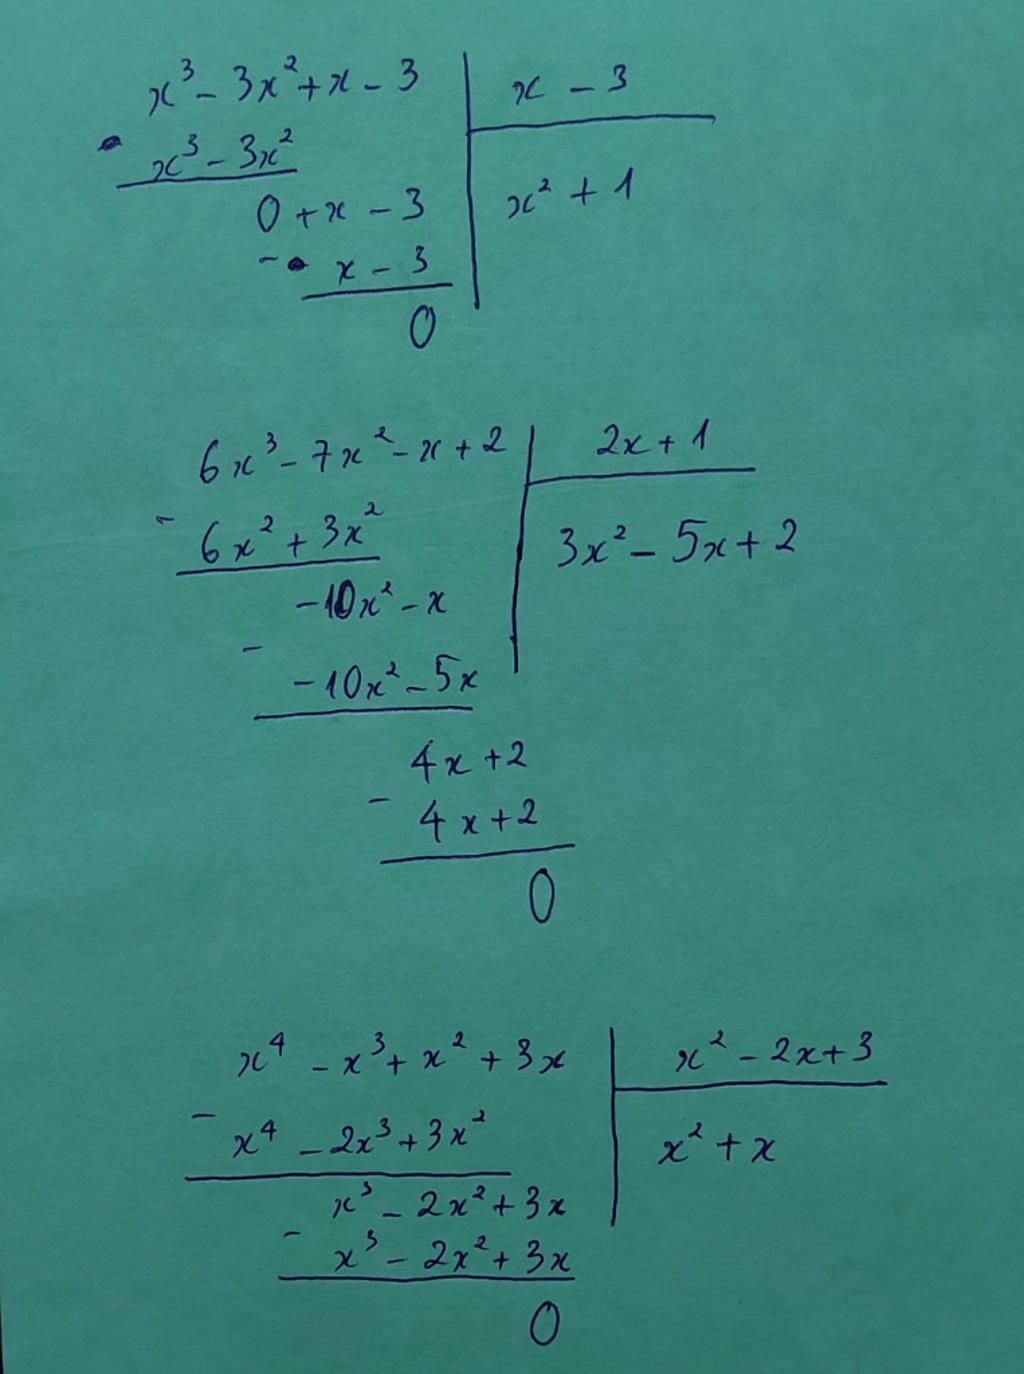 x³ - 3x² + x - 3 | x - 3
- x³ - 3x² | x² + 1
0 + x - 3
- x - 3
0
6x³ - 7x² - x + 2 | 2x + 1
- 6x² + 3x² | 3x² - 5x + 2
-10x² - x
- -10x² - 5x
4x + 2
- 4x + 2
0
x⁴ - x³ + x² + 3x | x² - 2x + 3
- x⁴ - 2x³ + 3x² | x² + x
x³ - 2x² + 3x
- x³ - 2x² + 3x
0